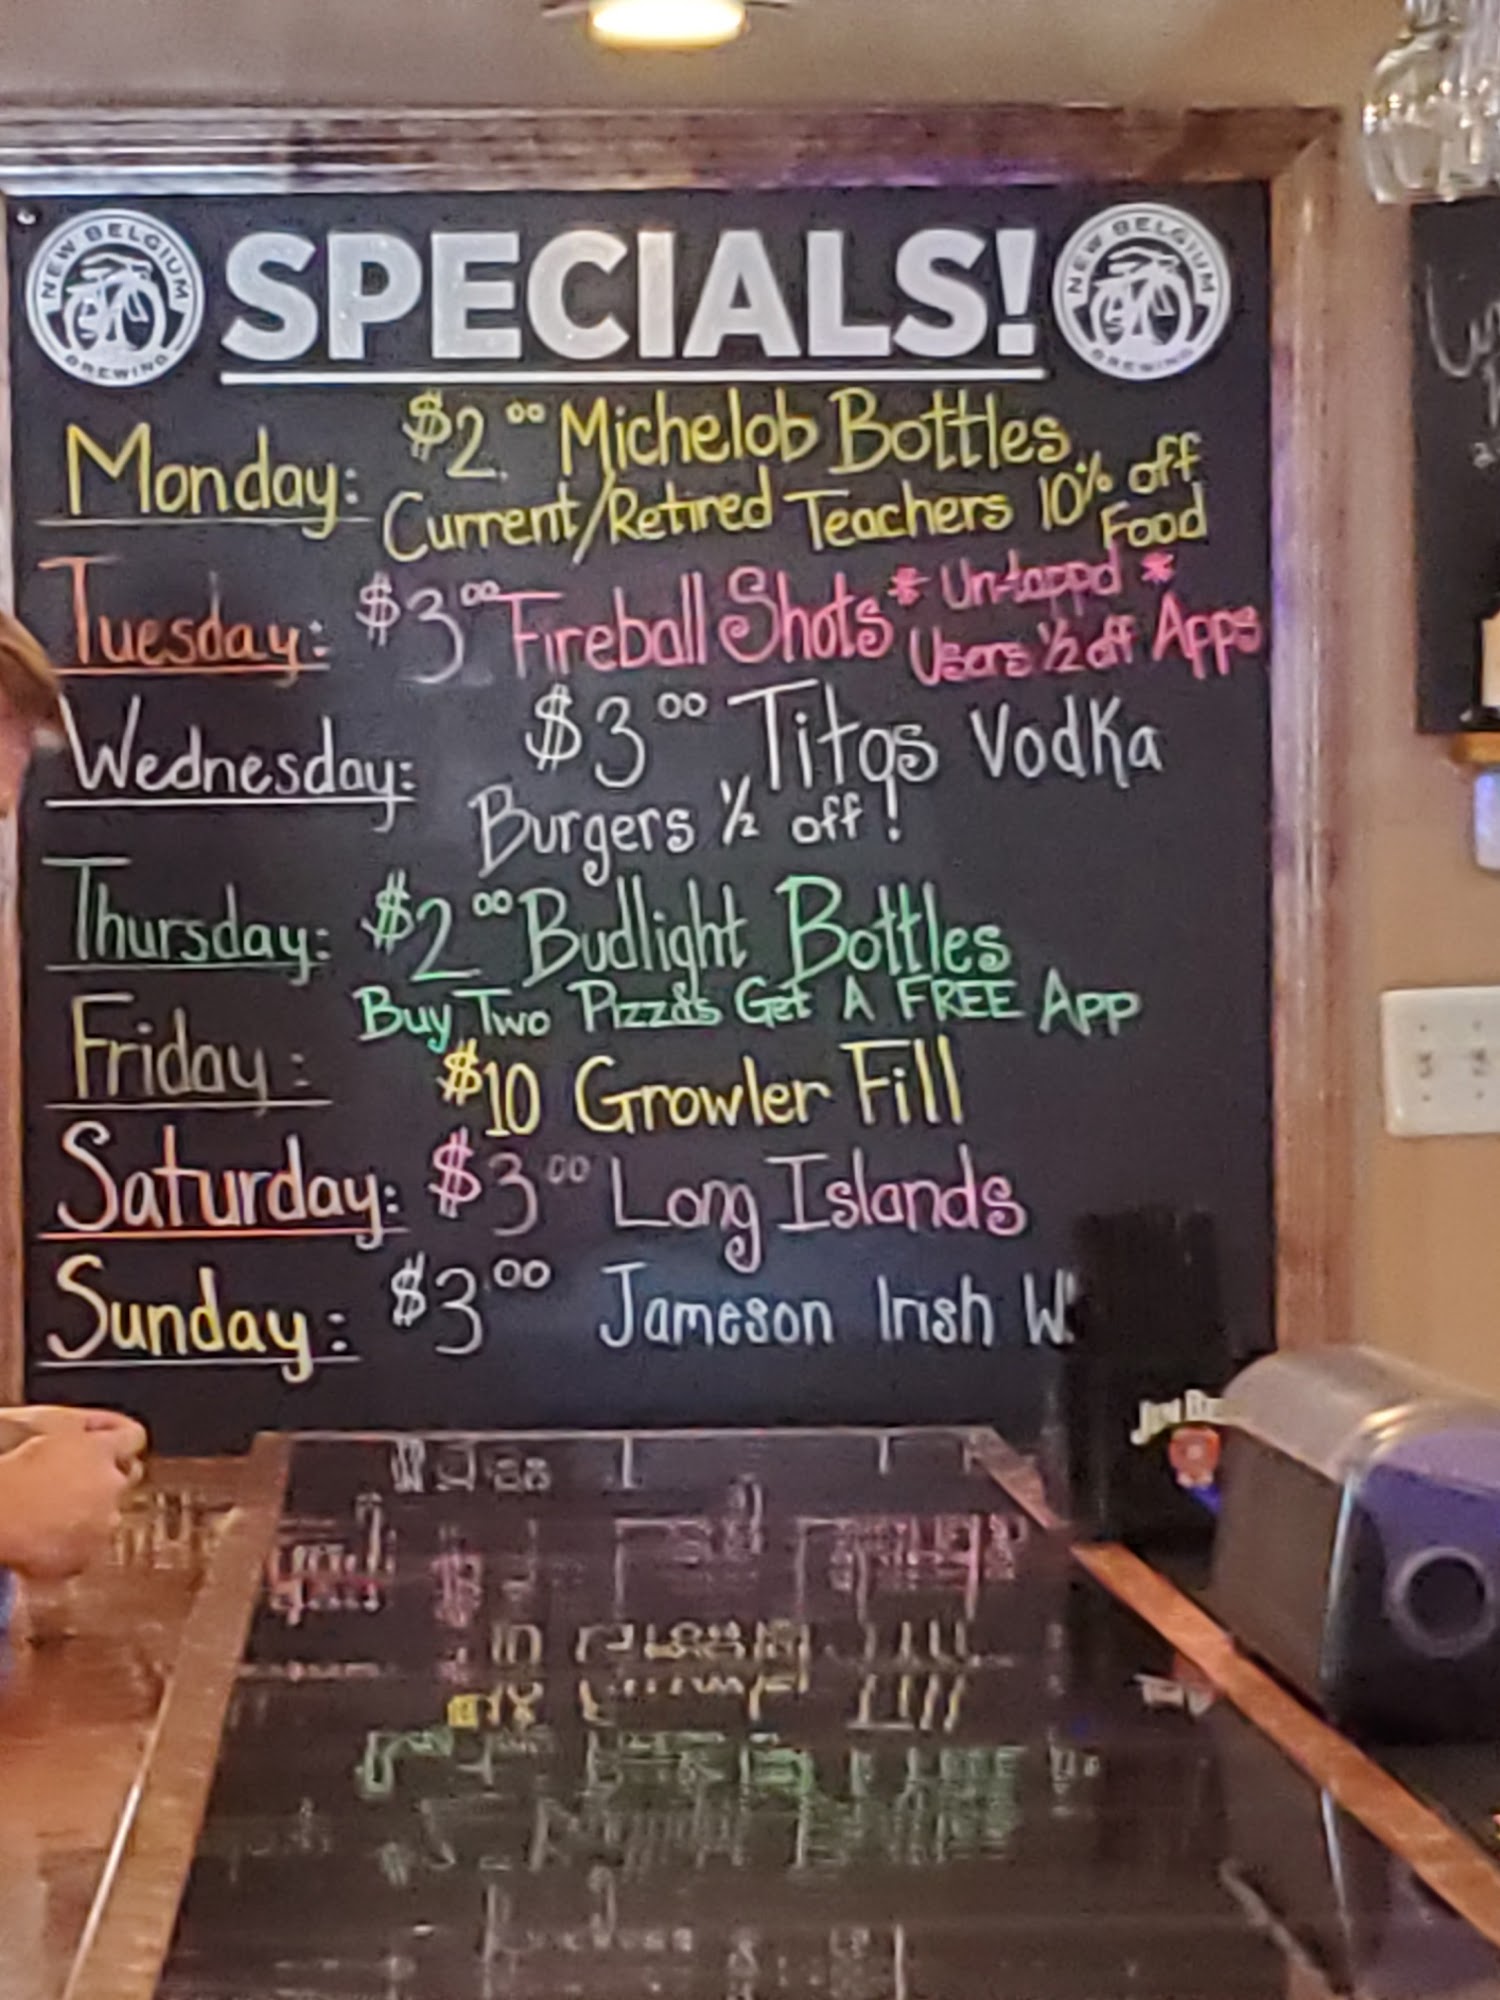 NEW BELGIUM BREWING
SPECIALS!
NEW BELGIUM BREWING
Monday: $2.00 Michelob Bottles
Current/Retired Teachers 10% off Food
Tuesday: $3.00 Fireball Shots * Untappd *
Users 1/2 off Apps
Wednesday: $3.00 Titos Vodka
Burgers 1/2 off!
Thursday: $2.00 Budlight Bottles
Buy Two Pizzas Get A FREE App
Friday: $10 Growler Fill
Saturday: $3.00 Long Islands
Sunday: $3.00 Jameson Irish W